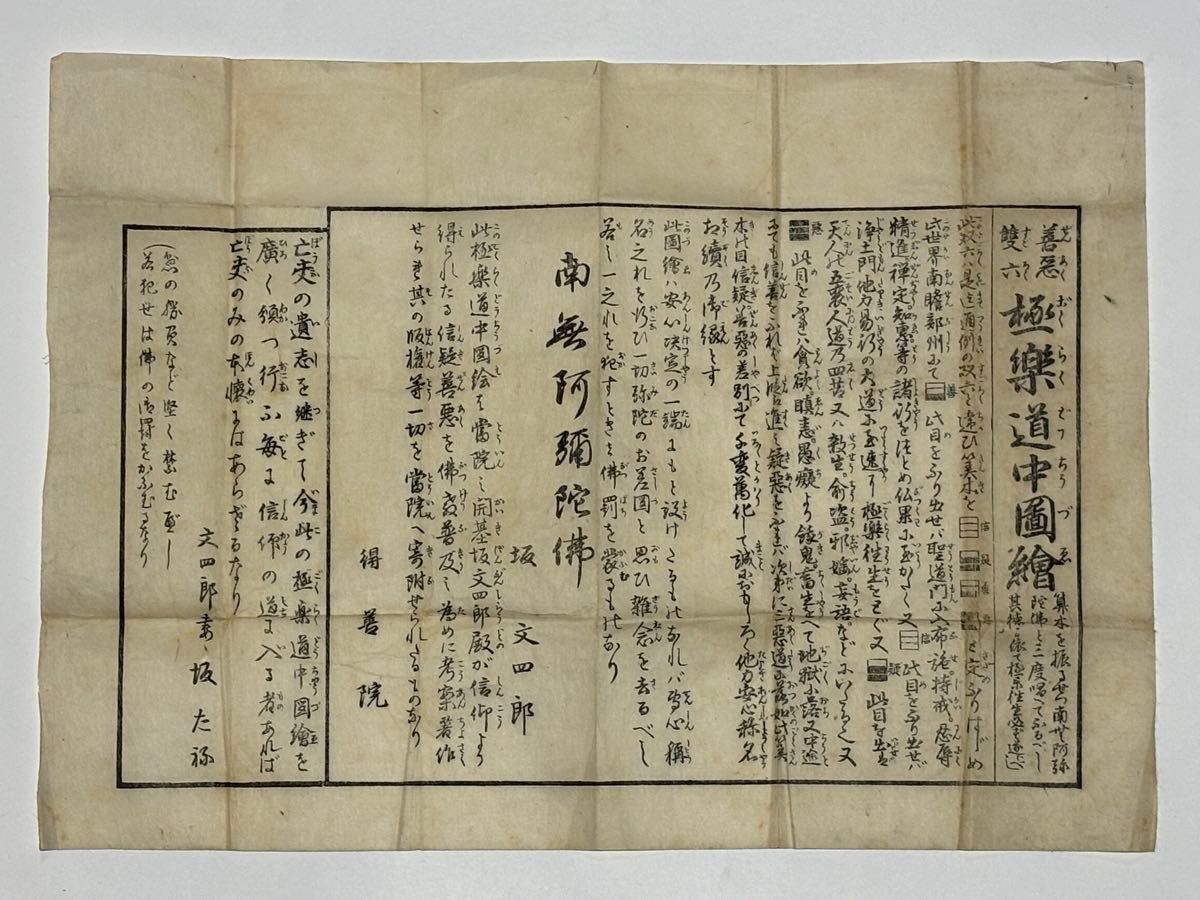 善悪
雙六
極樂道中圖繪
算木を振るせつ南無阿弥
陀佛と三度唱へてふるべし
此双六ハ是迄通例の双六と違ひ算木を 信 疑 善 悪 と定ふりはじめ
此世界南瞻部州にて 善 此目をふり出せハ聖道門に入布施持戒。忍辱
精進禅定。知恵等の諸行をつとめ仏果に至かたく又 信 此目をふり出せバ
浄土門他力易行の大道に至速に極樂往生をとぐ又 疑 此目を出せば
天人の五衰人道乃四苦又ハ殺生。偸盗。邪婬。妄語。など
悪 此目をふれハ貪欲瞋恚。愚癡より餓鬼。畜生をへて地獄に落又中途
にても信善をふれバ上段に進ミ疑惡をふれバ次第に三惡道に落
本の目信疑善惡の差別にて千変萬化して誠におもしろく他力安心称名
お續乃御縁とす
此圖繪ハ安心决定の一端にもと設けたるものなれバ専心稱
名之れを行ひ一切弥陀のお差圖と思ひ雜念を去るべし
若し一之れを犯すときは佛罰を蒙るものなり
南無阿彌陀佛
坂 文四郎
此極樂道中圖絵は當院之開基坂文四郎殿が信仰より
得られたる信疑善悪を佛教普及之為めに考案著作
せられ其の版権等一切を當院へ寄附せられたるものなり
得善院
亡夫の遺志を継ぎて今此の極楽道中圖繪を
廣く頒つ行ふ毎に信仰の道に入る者あれば
亡夫のみの本懐にはあらざるなり
文四郎妻、坂 たね
（急の勝負など堅く禁む可し
若犯せは佛の御罸をかふむるなり